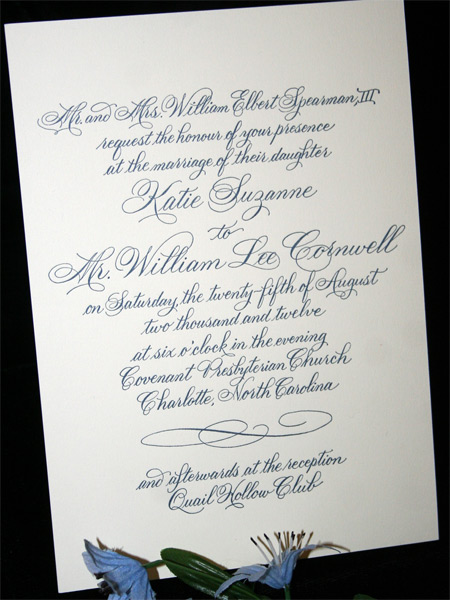 Mr. and Mrs. William Elbert Spearman, III
request the honour of your presence
at the marriage of their daughter
Katie Suzanne
to
Mr. William Lee Cornwell
on Saturday, the twenty-fifth of August
two thousand and twelve
at six o'clock in the evening
Covenant Presbyterian Church
Charlotte, North Carolina
and afterwards at the reception
Quail Hollow Club